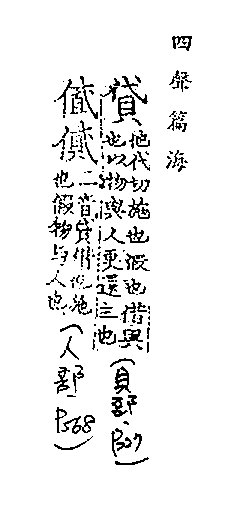 四聲篇海
貸 他代切施也假也借與也以物與人更還主也(貝部.P327)
儎㒃二音貸借也施也假物与人也(人部P568)